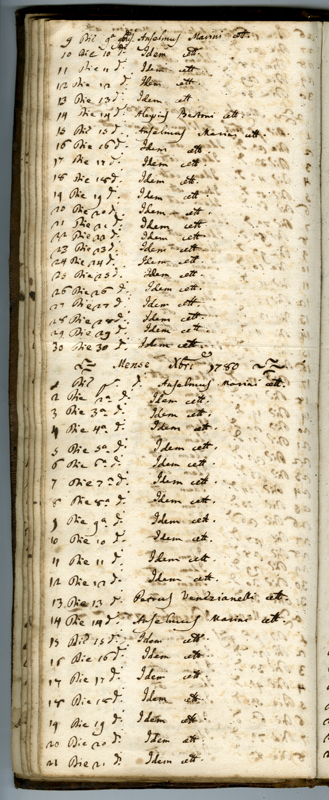 9 Die 9 d. Anselmus Marini cett.
10 Die 10 d. Idem cett.
11 Die 11 d. Idem cett.
12 Die 12 d. Idem cett.
13 Die 13 d. Idem cett.
14 Die 14 d. cett.
15 Die 15 d. Anselmus Marini cett.
16 Die 16 d. Idem cett.
17 Die 17 d. Idem cett.
18 Die 18 d. Idem cett.
19 Die 19 d. Idem cett.
20 Die 20 d. Idem cett.
21 Die 21 d. Idem cett.
22 Die 22 d. Idem cett.
23 Die 23 d. Idem cett.
24 Die 24 d. Idem cett.
25 Die 25 d. Idem cett.
26 Die 26 d. Idem cett.
27 Die 27 d. Idem cett.
28 Die 28 d. Idem cett.
29 Die 29 d. Idem cett.
30 Die 30 d. Idem cett.
Mense Xbri 1780
1 Die d. Anselmus Marini cett.
2 Die 2a d. Idem cett.
3 Die 3a d. Idem cett.
4 Die 4a d. Idem cett.
5 Die 5a d. Idem cett.
6 Die 6a d. Idem cett.
7 Die 7a d. Idem cett.
8 Die 8a d. Idem cett.
9 Die 9a d. Idem cett.
10 Die 10 d. Idem cett.
11 Die 11 d. Idem cett.
12 Die 12 d. Idem cett.
13 Die 13 d. Vendzianelli cett.
14 Die 14 d. Anselmus Marini cett.
15 Die 15 d. Idem cett.
16 Die 16 d. Idem cett.
17 Die 17 d. Idem cett.
18 Die 18 d. Idem cett.
19 Die 19 d. Idem cett.
20 Die 20 d. Idem cett.
21 Die 21 d. Idem cett.